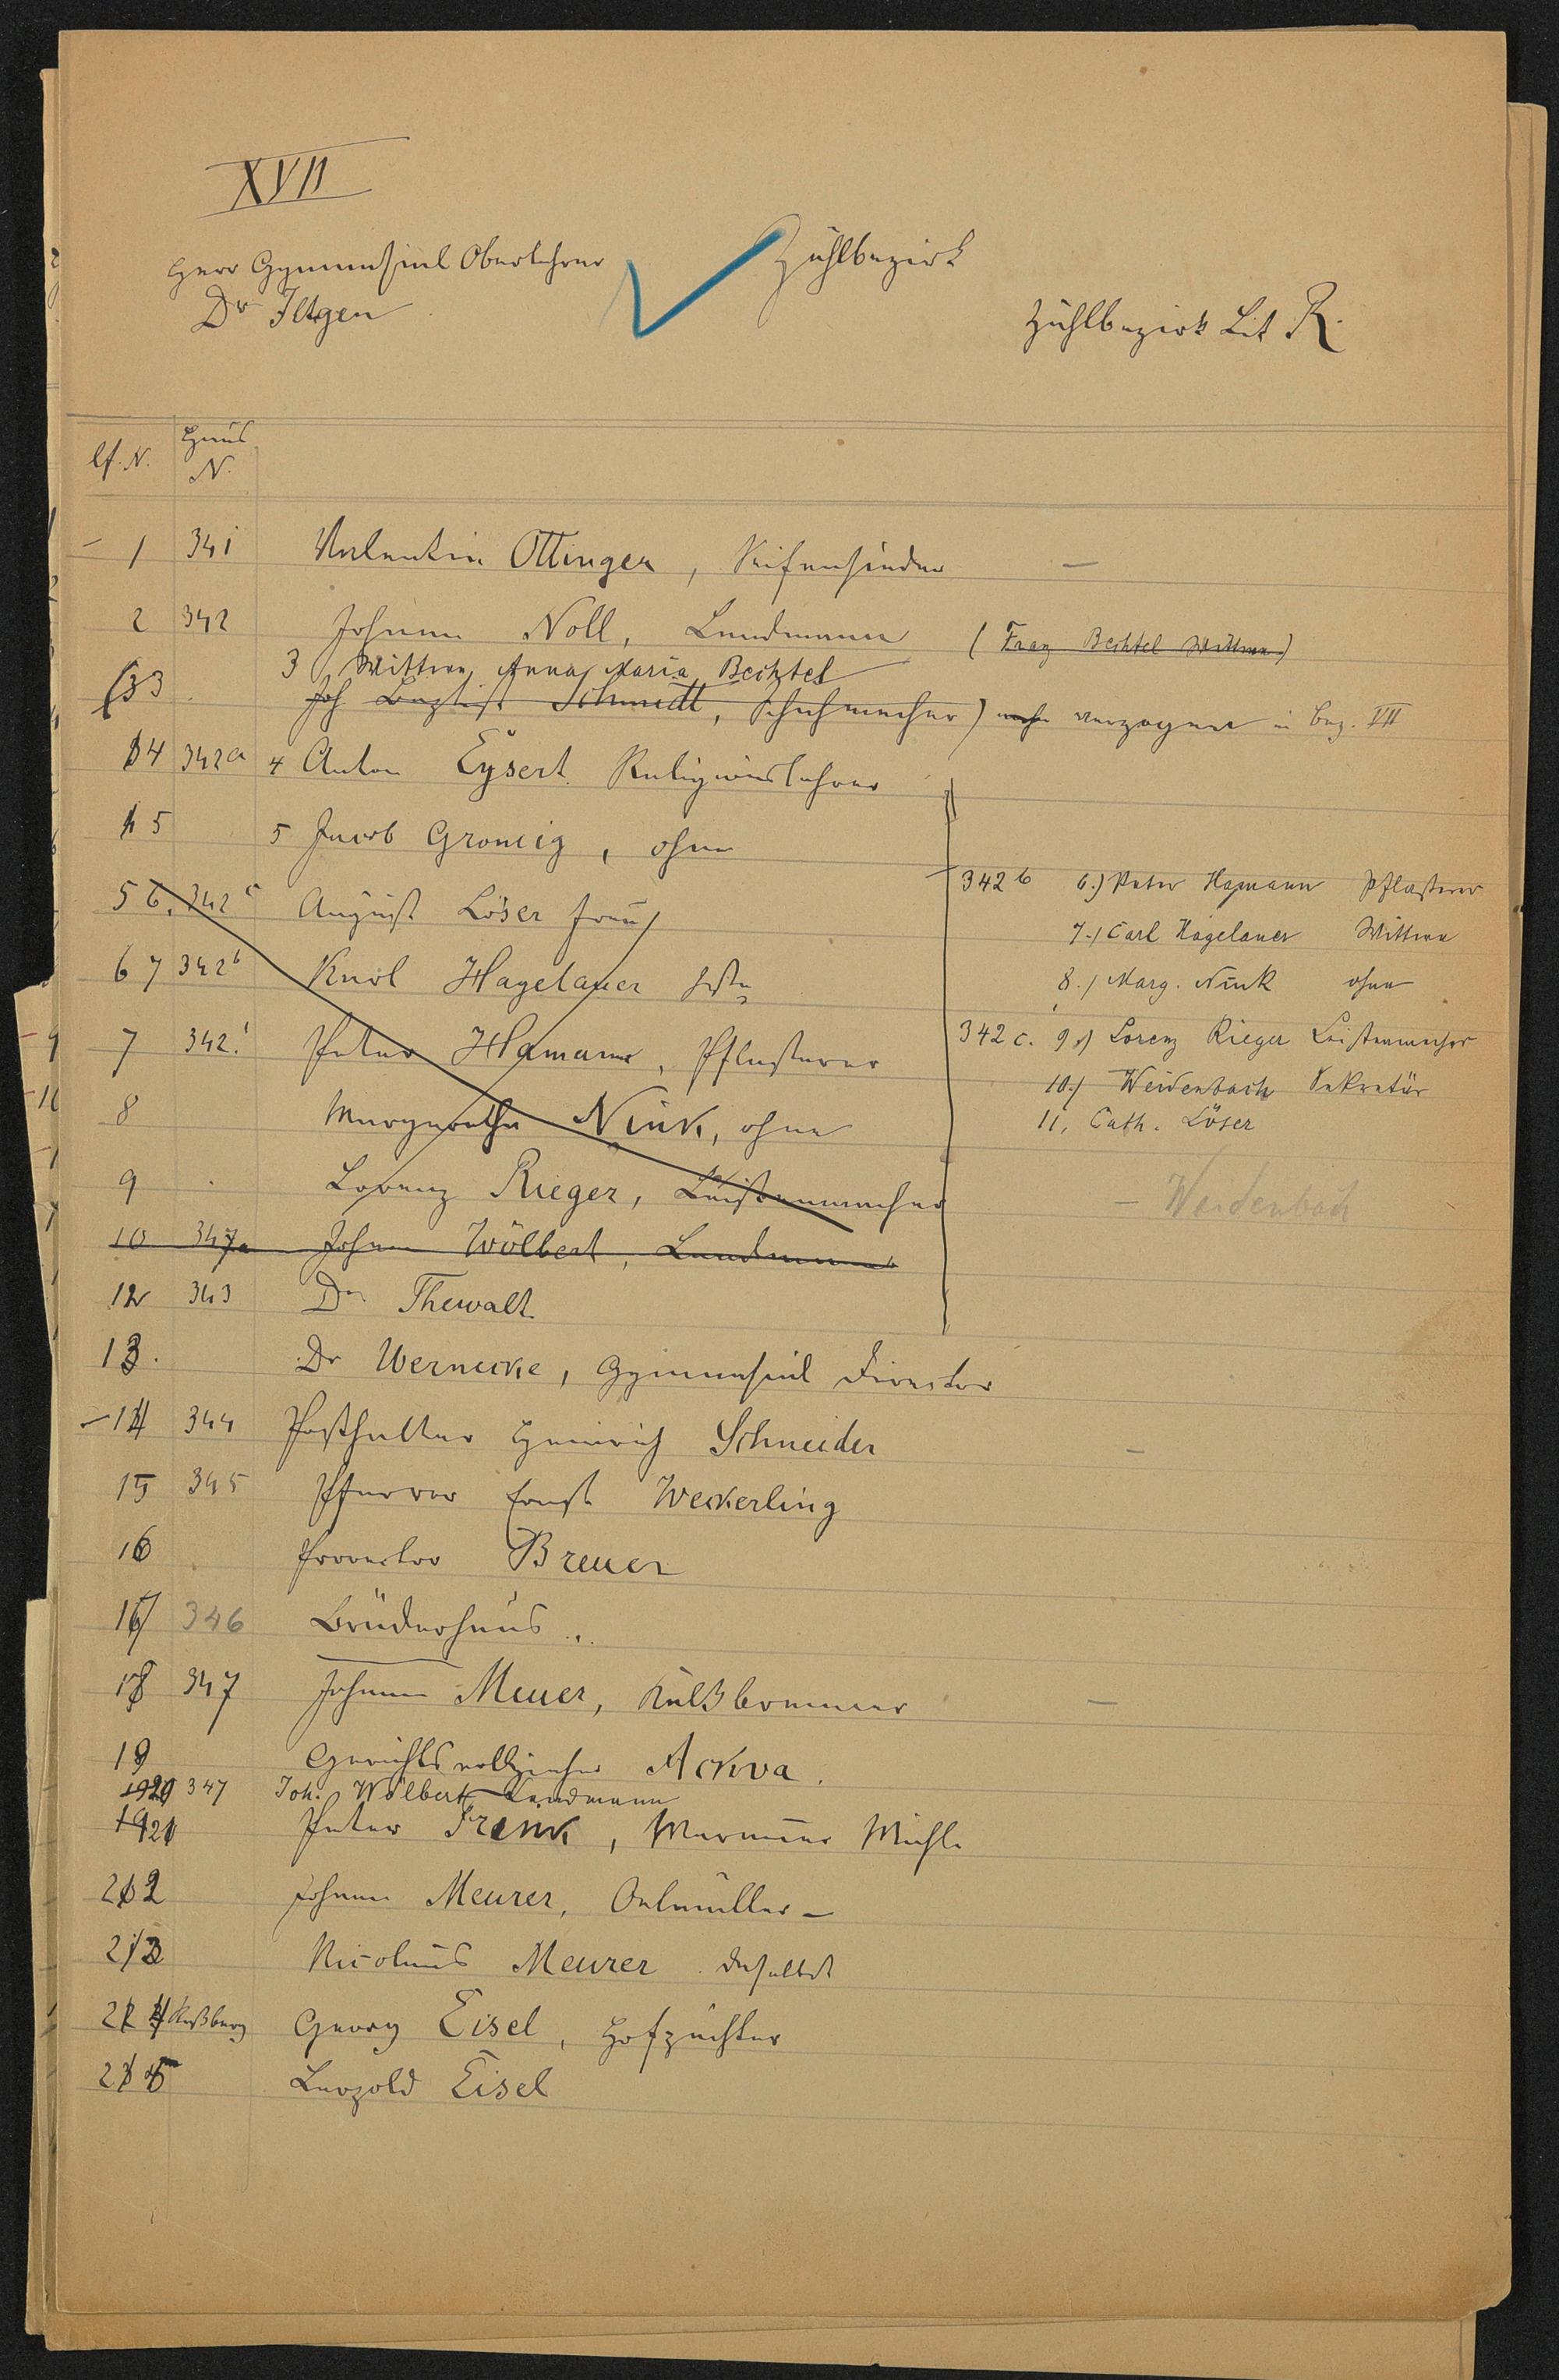 XVII
Herr Gymnasial Oberlehrer
Dr Iltgen
Zählbezirk
Zählbezirk Lit R.
lf. N. Haus N.
1 341 Valentin Ottinger, Seifensieder
2 342 Johann Noll, Landmann (Franz Bechtel Wittwe)
3 Wittwe Anna Maria Bechtel
33 Joh Baptist Schmidt, Schuhmacher) verzogen in Bez. VII
4 342a 4 Anton Eysert Religionslehrer
5 5 Jacob Groncig, ohne
5 6. 342c August Löser Frau
6 7 342b Karl Hagelauer
7 342. Peter Hamann, Pflasterer
8 Margaretha Nink, ohne
9 Lorenz Rieger, Leistenmacher
10 347a Johann Wölbert, Landmann
342b 6.) Peter Hamann Pflasterer
7.) Carl Hagelauer Wittwe
8.) Marg. Nink ohne
342c. 9.) Lorenz Rieger Leistenmacher
10.) Weidenbach Sekretär
11, Cath. Löser
- Weidenbach
12 343 Dr Thewalt
13. Dr Wernecke, Gymnasial Director
14 344 Posthalter Heinrich Schneider
15 345 Pfarrer Ernst Weckerling
16 Prorector Breuer
17 346 Brüderhaus
18 347 Johann Meuer, Kaltbrenner
19 Gerichtsvollzieher Ackva.
1920 347 Joh. Wölbert Landmann
1921 Peter Frink, Mühle
22 Johann Meurer, Oelmüller
23 Nicolaus Meurer daselbst
24 Roßberg Georg Eisel, Hofpächter
25 Leopold Eisel